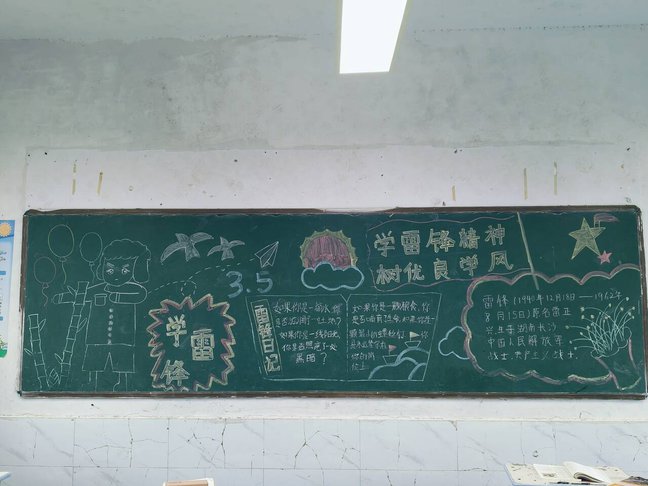 3.5
学雷锋精神
树优良学风
学雷锋
雷锋日记
如果你是一滴水,你
是否滋润了一
寸土地?
如果你是一线阳光,
你是否照亮了一处
黑暗?
如果你是一颗粮食,你
是否哺育
最小的螺丝钉
你的岗
位上
雷锋(1940年12月18日——1962年
8月15日)原名雷正
兴出生湖南长沙
中国人民解放军
战士,共产主义战士.